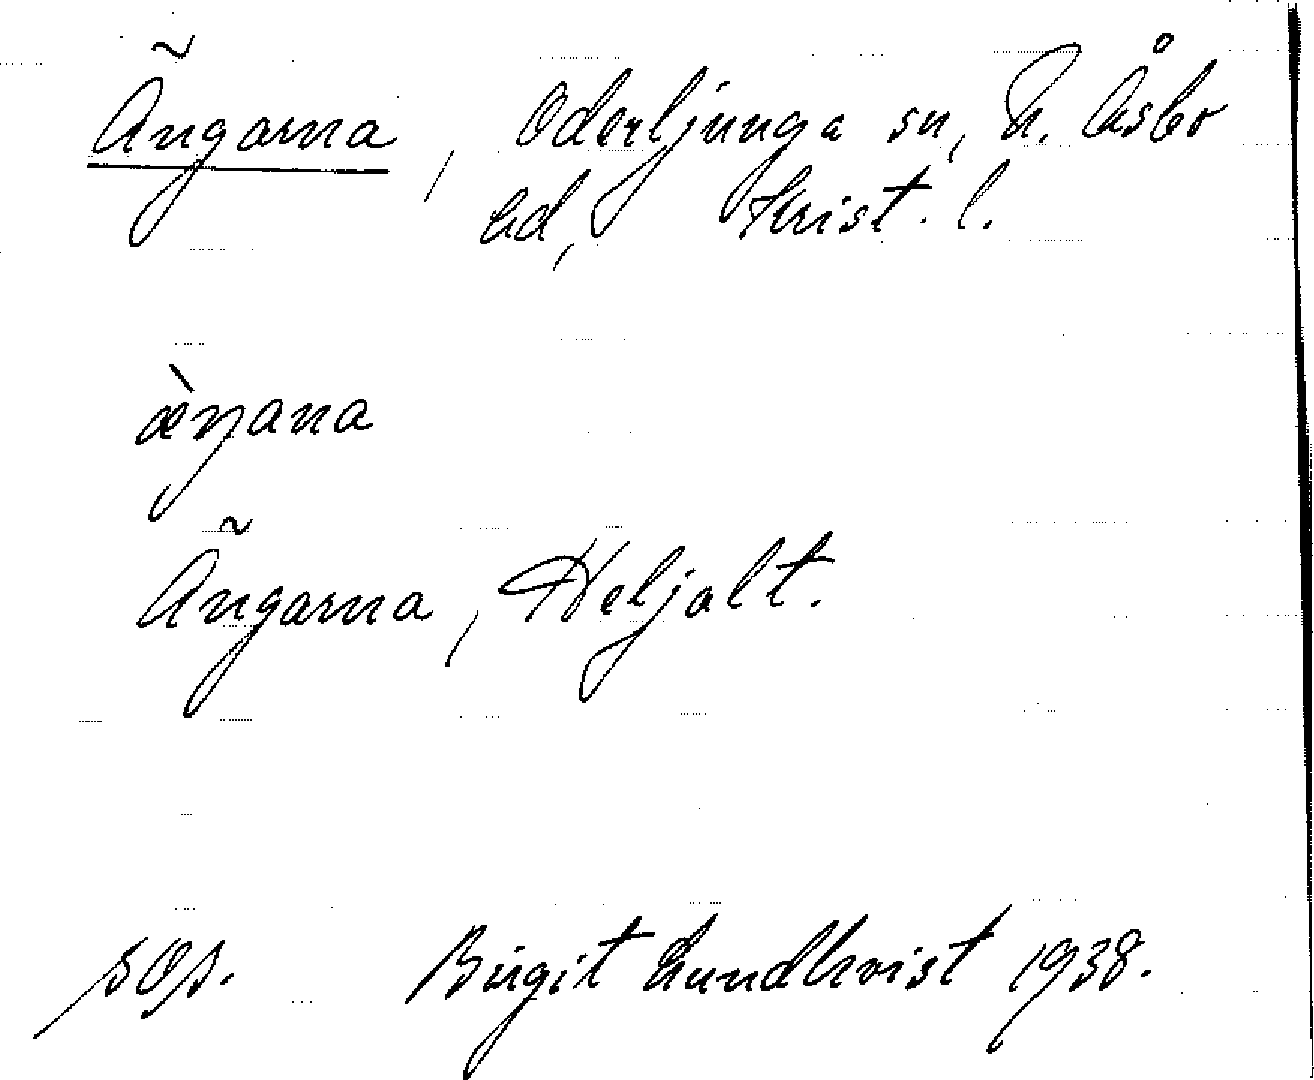 Ängarna, Oderljunga sn, N. Åsbo
hd, Krist. l.
æ̀ŋana
Ängarna, Heljalt.
sOs. Birgit Lundkvist 1938.